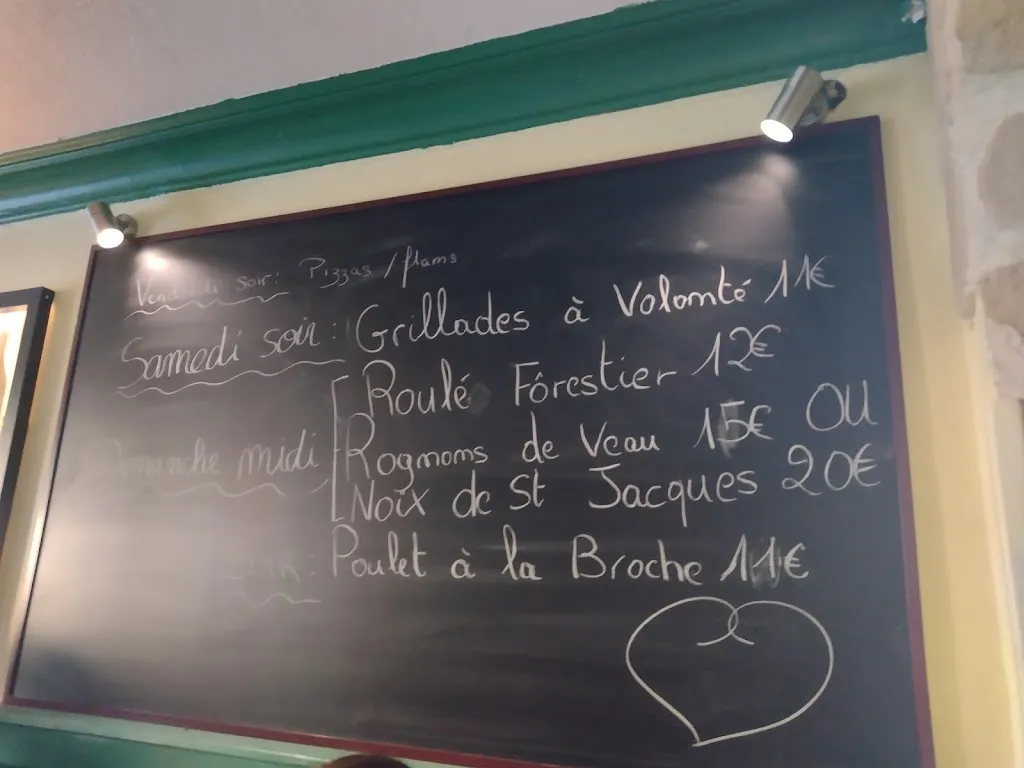 Vendredi soir: Pizzas / flams
Samedi soir: Grillades à Volonté 11€
Roulé Fôrestier 12€
Dimanche midi Rognons de Veau 15€ OU
Noix de St Jacques 20€
Poulet à la Broche 11€